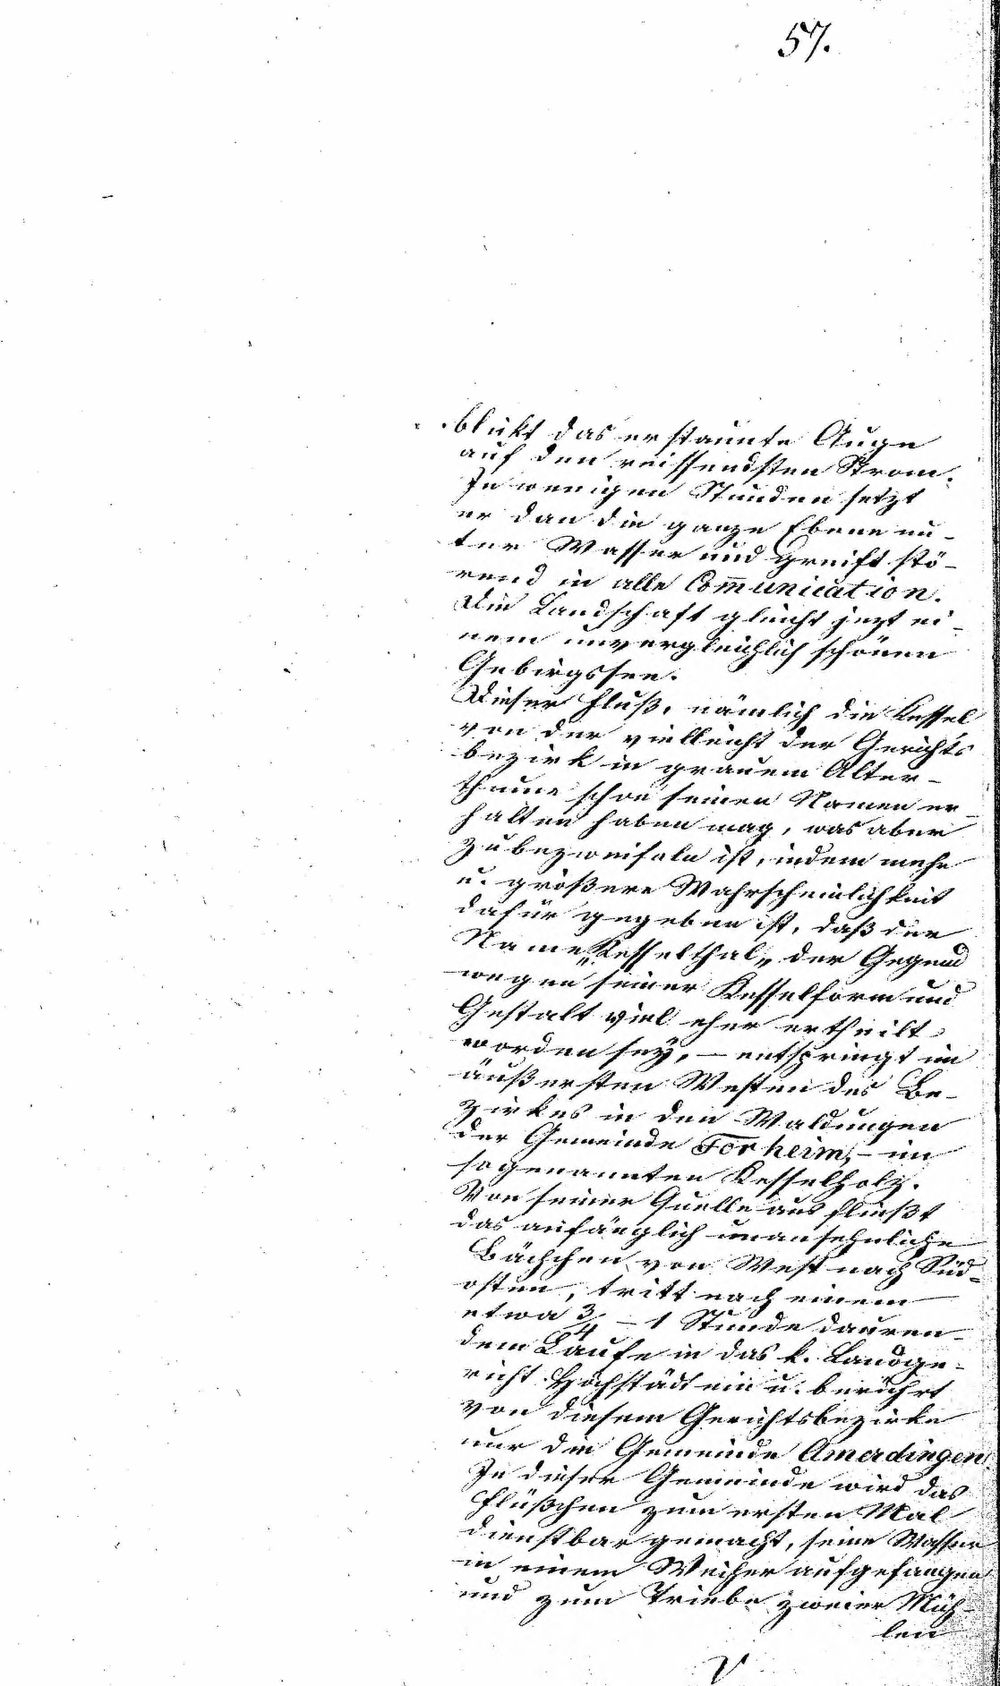 57.
blickt das erstaunte Auge
auf den reissendsten Strom.
In wenigen Stunden setzt
er dan die ganze Ebene un-
ter Wasser und greift stö-
rend in alle Com̅unication.
Die Landschaft gleicht jezt ei-
nem unvergleichlich schönen
Gebirgssee.
Dieser Fluß, nämlich die Kessel
von der vielleicht der Gerichts
bezirk in grauem Alter-
thume schon seinen Namen er-
halten haben mag, was aber
zu bezweifeln ist, indem mehr
u. größere Wahrscheinlichkeit
dafür gegeben ist, daß der
Name „Kesselthal„ der Gegend
wegen seiner Kesselform und
Gestalt viel eher ertheilt
worden sey, – entspringt im
äußersten Westen des Be-
zirkes in den Waldungen
der Gemeinde Forheim, – im
sogenannten Kesselholz.
Von seiner Quelle aus fließt
das anfänglich unansehnliche
Bächchen von West nach Süd-
osten, tritt nach einem
etwa 3/4 – 1 Stunde dauren-
dem Laufe in das k. Landge-
richt Höchstädt ein u. berührt
von diesem Gerichtsbezirke
nur die Gemeinde Amerdingen.
In dieser Gemeinde wird das
Flüßchen zum ersten Mal
dienstbar gemacht, seine Wasser
in einem Weiher aufgefangen
und zum Triebe zweier Müh-
len